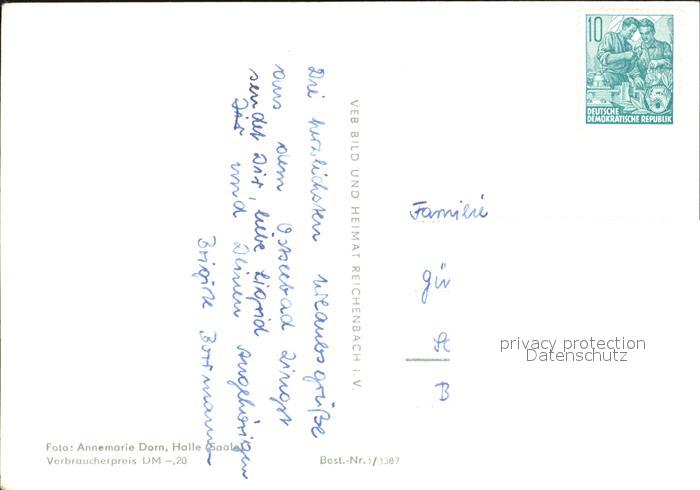 10
DEUTSCHE
DEMOKRATISCHE REPUBLIK
Die herzlichsten Urlaubsgrüße
aus dem Ostseebad Zingst
sendet Dir, liebe Sigrid
Dir und Deinen Angehörigen
Brigitte Borrmann
VEB BILD UND HEIMAT REICHENBACH I. V.
Familie
privacy protection
Datenschutz
Foto: Annemarie Dorn, Halle (Saale)
Verbraucherpreis DM –,20
Best.-Nr. 1/3387